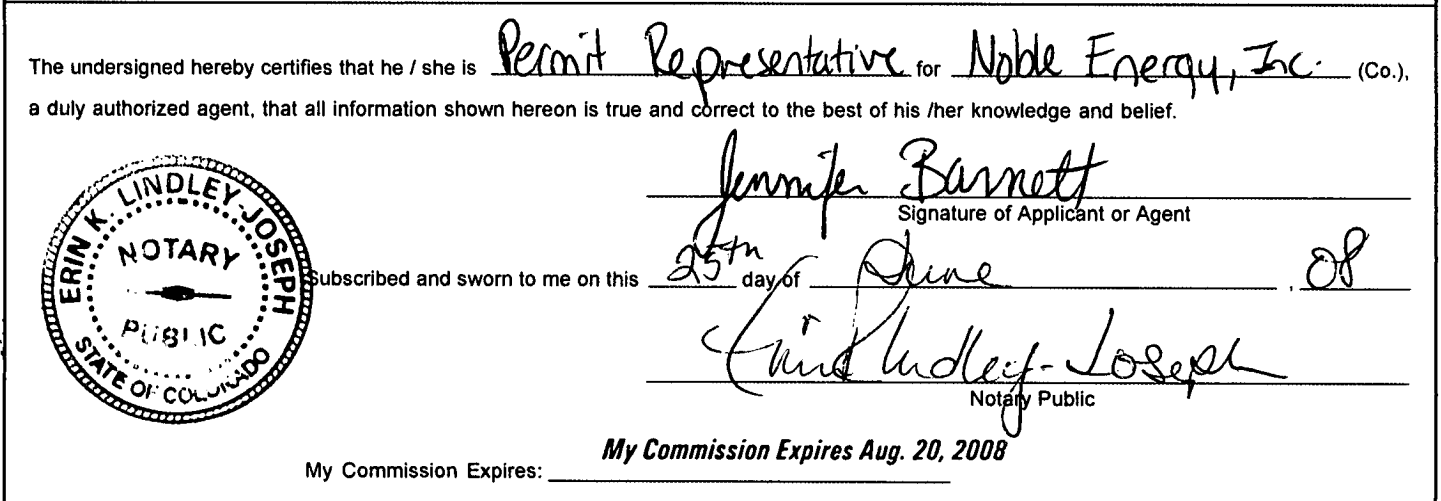 The undersigned hereby certifies that he / she is Permit Representative for Noble Energy, Inc. (Co.),
a duly authorized agent, that all information shown hereon is true and correct to the best of his /her knowledge and belief.
Jennifer Barnett
Signature of Applicant or Agent
ERIN K. LINDLEY-JOSEPH
NOTARY
PUBLIC
STATE OF COLORADO
Subscribed and sworn to me on this 25th day of June, 08
Erin K Lindley-Joseph
Notary Public
My Commission Expires Aug. 20, 2008
My Commission Expires: